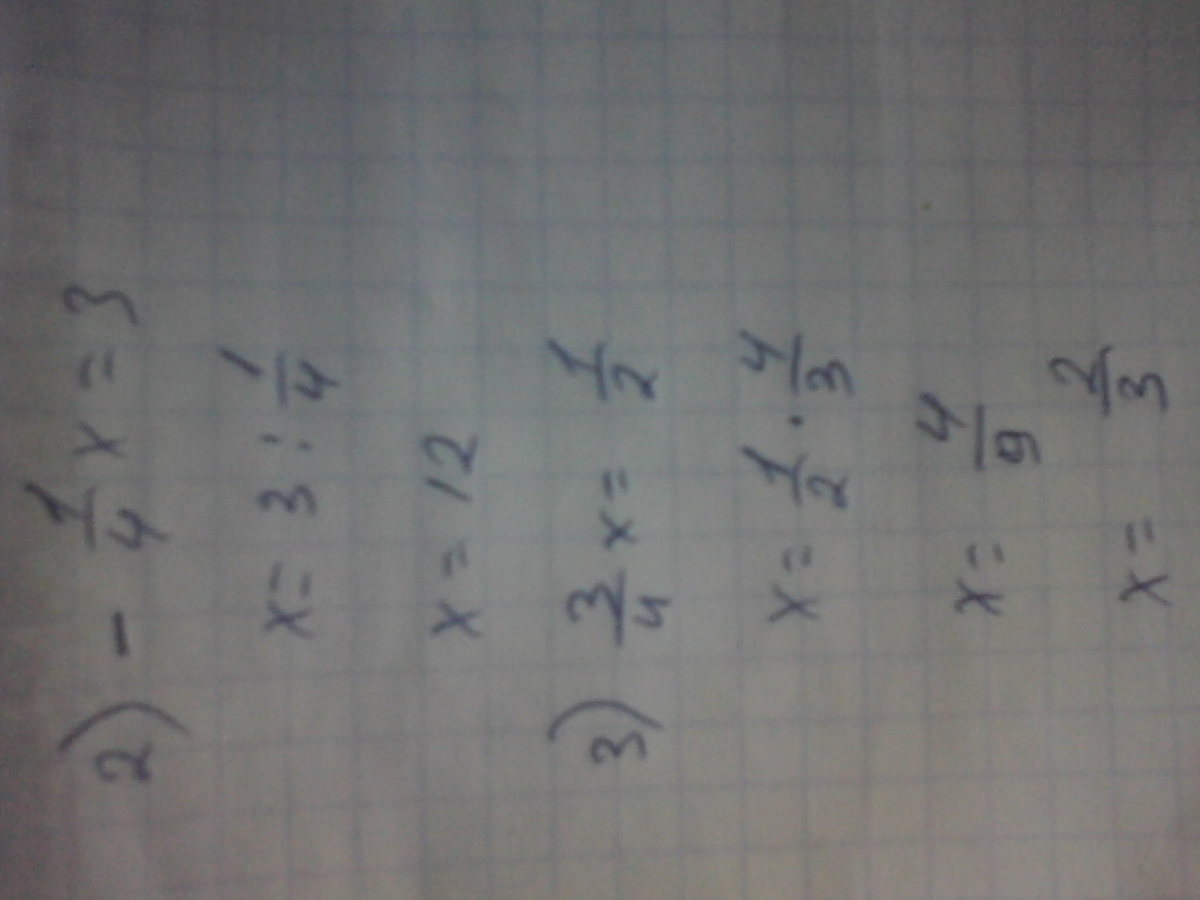 2) - 1/4 x = 3
x = 3 : 1/4
x = 12
3) 3/4 x = 1/2
x = 1/2 · 4/3
x = 4/9
x = 2/3